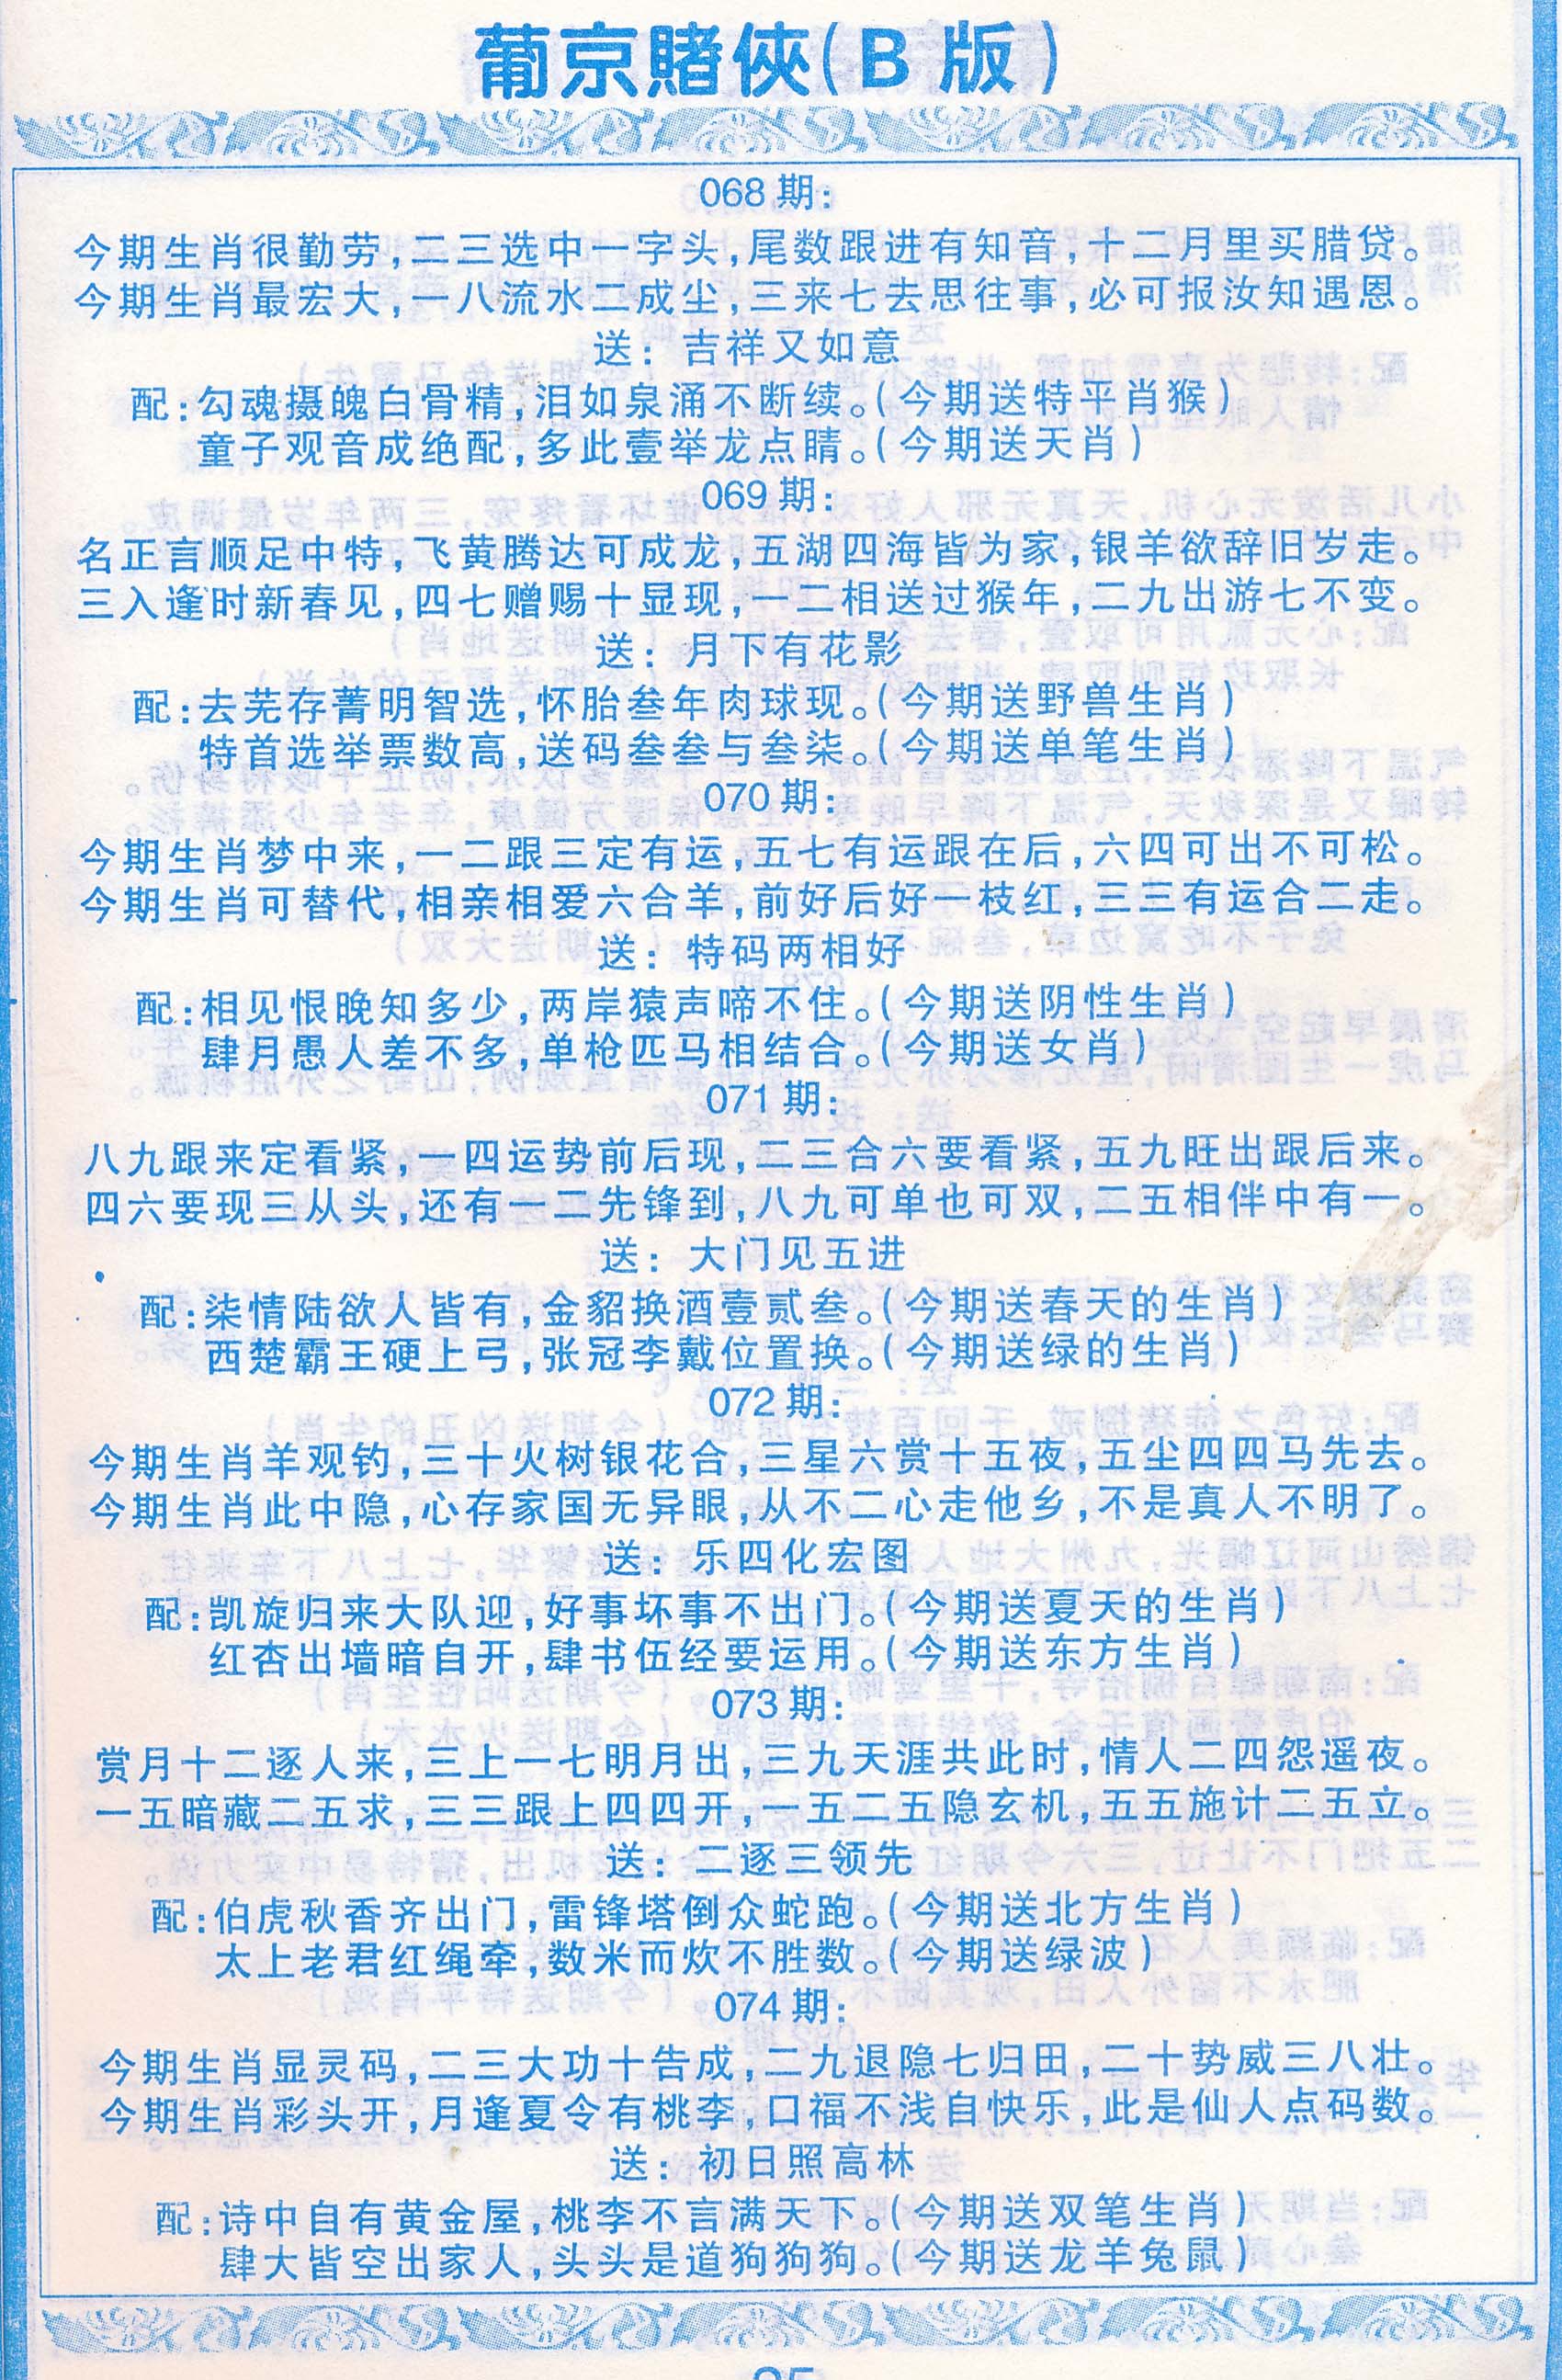 葡京賭俠(B 版)
068期:
今期生肖很勤劳,二三选中一字头,尾数跟进有知音,十二月里买腊贷。
今期生肖最宏大,一八流水二成尘,三来七去思往事,必可报汝知遇恩。
送: 吉祥又如意
配:勾魂摄魄白骨精,泪如泉涌不断续。(今期送特平肖猴)
童子观音成绝配,多此壹举龙点睛。(今期送天肖)
069期:
名正言顺足中特,飞黄腾达可成龙,五湖四海皆为家,银羊欲辞旧岁走。
三入逢时新春见,四七赠赐十显现,一二相送过猴年,二九出游七不变。
送: 月下有花影
配:去芜存菁明智选,怀胎叁年肉球现。(今期送野兽生肖)
特首选举票数高,送码叁叁与叁柒。(今期送单笔生肖)
070期:
今期生肖梦中来,一二跟三定有运,五七有运跟在后,六四可出不可松。
今期生肖可替代,相亲相爱六合羊,前好后好一枝红,三三有运合二走。
送: 特码两相好
配:相见恨晚知多少,两岸猿声啼不住。(今期送阴性生肖)
肆月愚人差不多,单枪匹马相结合。(今期送女肖)
071期:
八九跟来定看紧,一四运势前后现,二三合六要看紧,五九旺出跟后来。
四六要现三从头,还有一二先锋到,八九可单也可双,二五相伴中有一。
送: 大门见五进
配:柒情陆欲人皆有,金貂换酒壹贰叁。(今期送春天的生肖)
西楚霸王硬上弓,张冠李戴位置换。(今期送绿的生肖)
072期:
今期生肖羊观钓,三十火树银花合,三星六赏十五夜,五尘四四马先去。
今期生肖此中隐,心存家国无异眼,从不二心走他乡,不是真人不明了。
送: 乐四化宏图
配:凯旋归来大队迎,好事坏事不出门。(今期送夏天的生肖)
红杏出墙暗自开,肆书伍经要运用。(今期送东方生肖)
073期:
赏月十二逐人来,三上一七明月出,三九天涯共此时,情人二四怨遥夜。
一五暗藏二五求,三三跟上四四开,一五二五隐玄机,五五施计二五立。
送: 二逐三领先
配:伯虎秋香齐出门,雷锋塔倒众蛇跑。(今期送北方生肖)
太上老君红绳牵,数米而炊不胜数。(今期送绿波)
074期:
今期生肖显灵码,二三大功十告成,二九退隐七归田,二十势威三八壮。
今期生肖彩头开,月逢夏令有桃李,口福不浅自快乐,此是仙人点码数。
送: 初日照高林
配:诗中自有黄金屋,桃李不言满天下。(今期送双笔生肖)
肆大皆空出家人,头头是道狗狗狗。(今期送龙羊兔鼠)